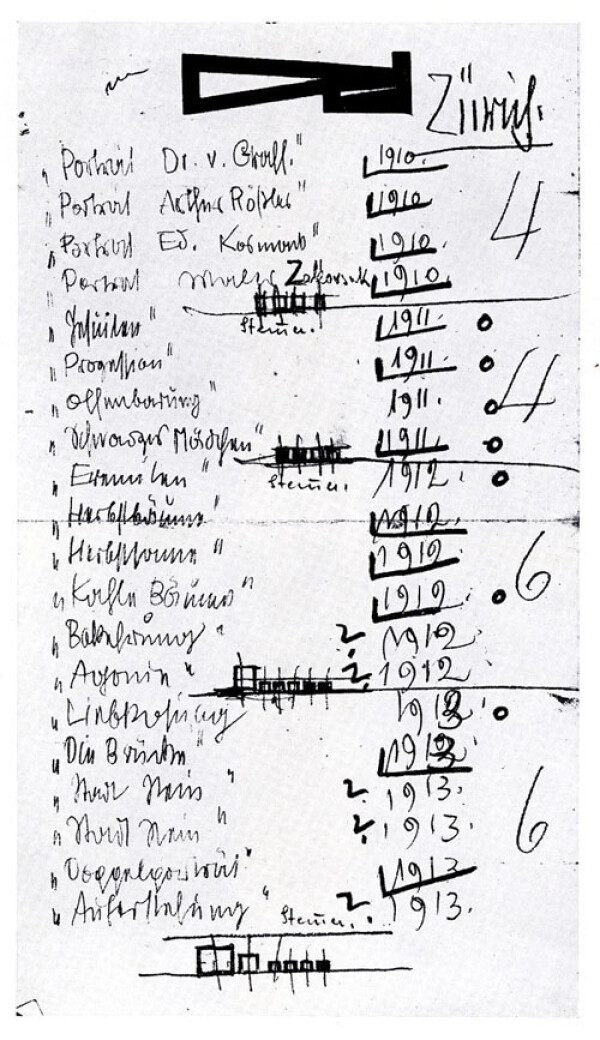 Zürich.
„Porträt Dr. v. Graff." 1910.
„Porträt Arthur Rößler" 1910
„Porträt Ed. Kosmack" 1910.
4
„Porträt Maler Zakovsek 1910.
„Jesuiten" 1911.
„Prozession" 1911.
„Offenbarung" 1911.
4
„Schwarzes Mädchen" 1911.
„Eremiten" 1912.
„Herbstbäume" 1912.
„Herbstsonne" 1912
6
„Kahle Bäume" 1912.
„Bekehrung" ? 1912
„Agonie" ? 1912
„Liebkosung 1913
„Die Brücke" 1913
„Stadt Stein" ? 1913.
„Stadt Stein" ? 1913.
6
„Doppelporträt" 1913
„Auferstehung" ? 1913.